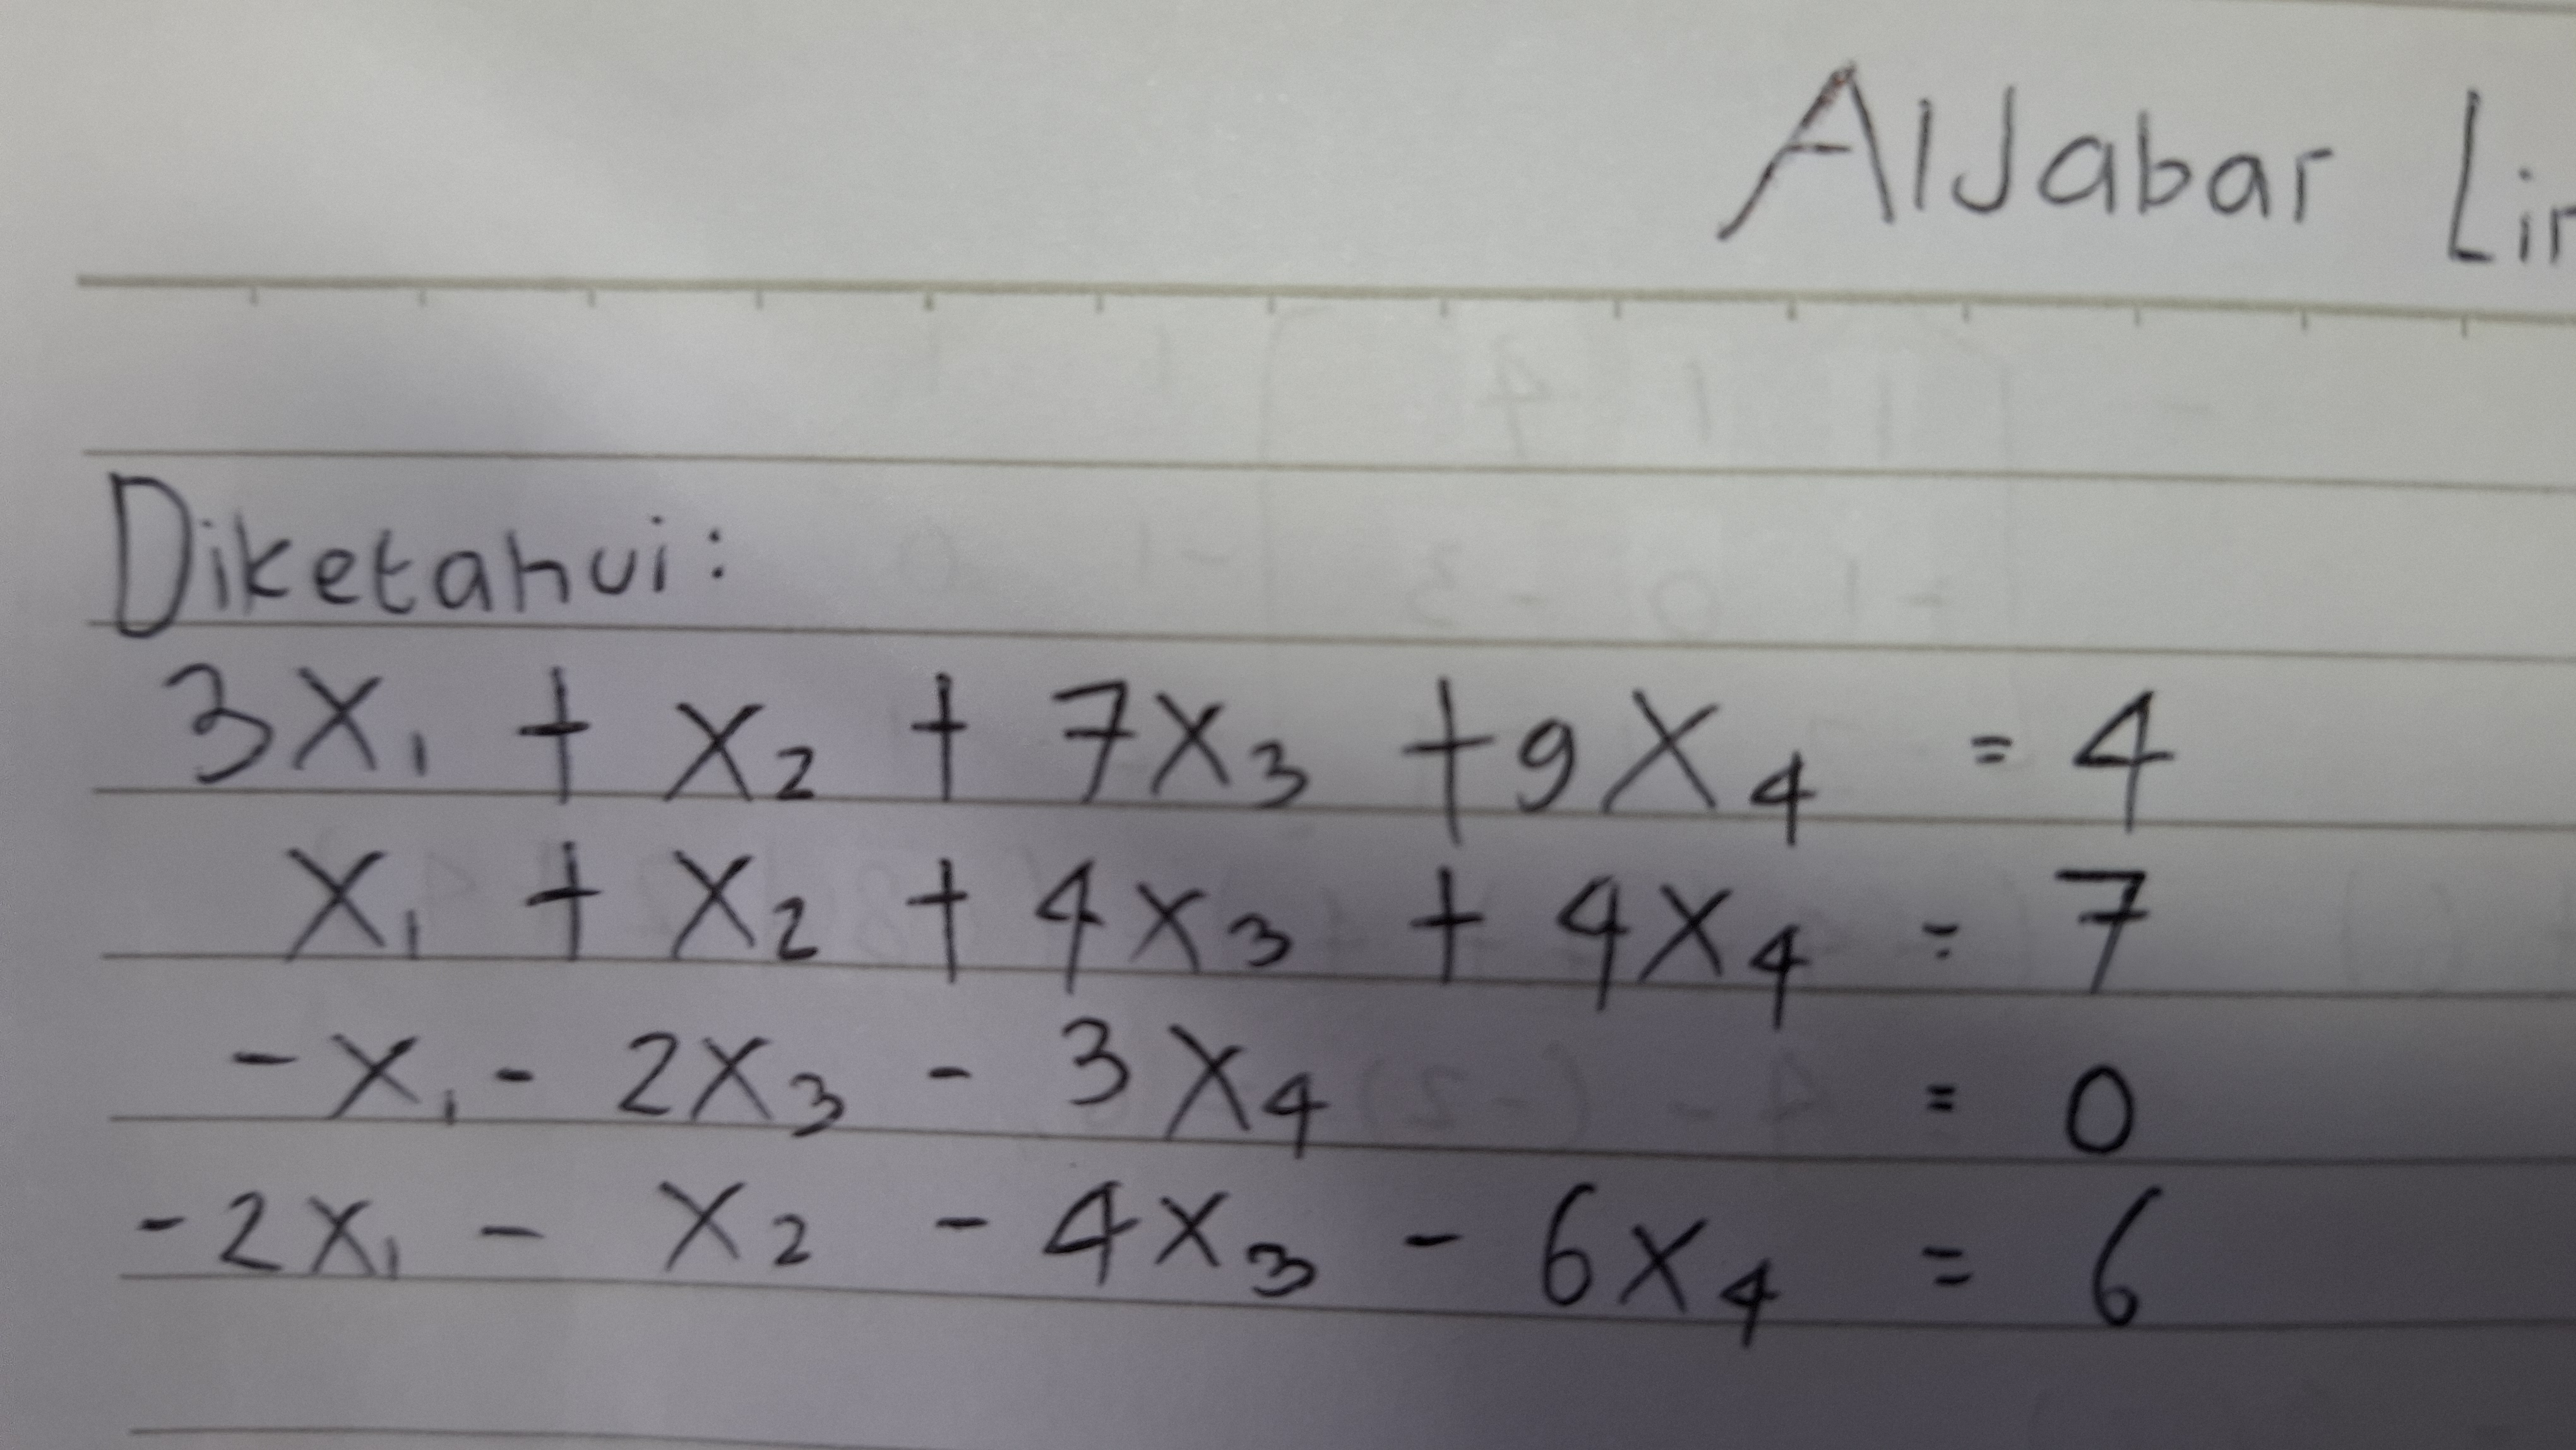 AlJabar Lin
Diketahui:
3X₁ + X₂ + 7X₃ + 9X₄ = 4
X₁ + X₂ + 4X₃ + 4X₄ = 7
-X₁ - 2X₃ - 3X₄ = 0
-2X₁ - X₂ - 4X₃ - 6X₄ = 6